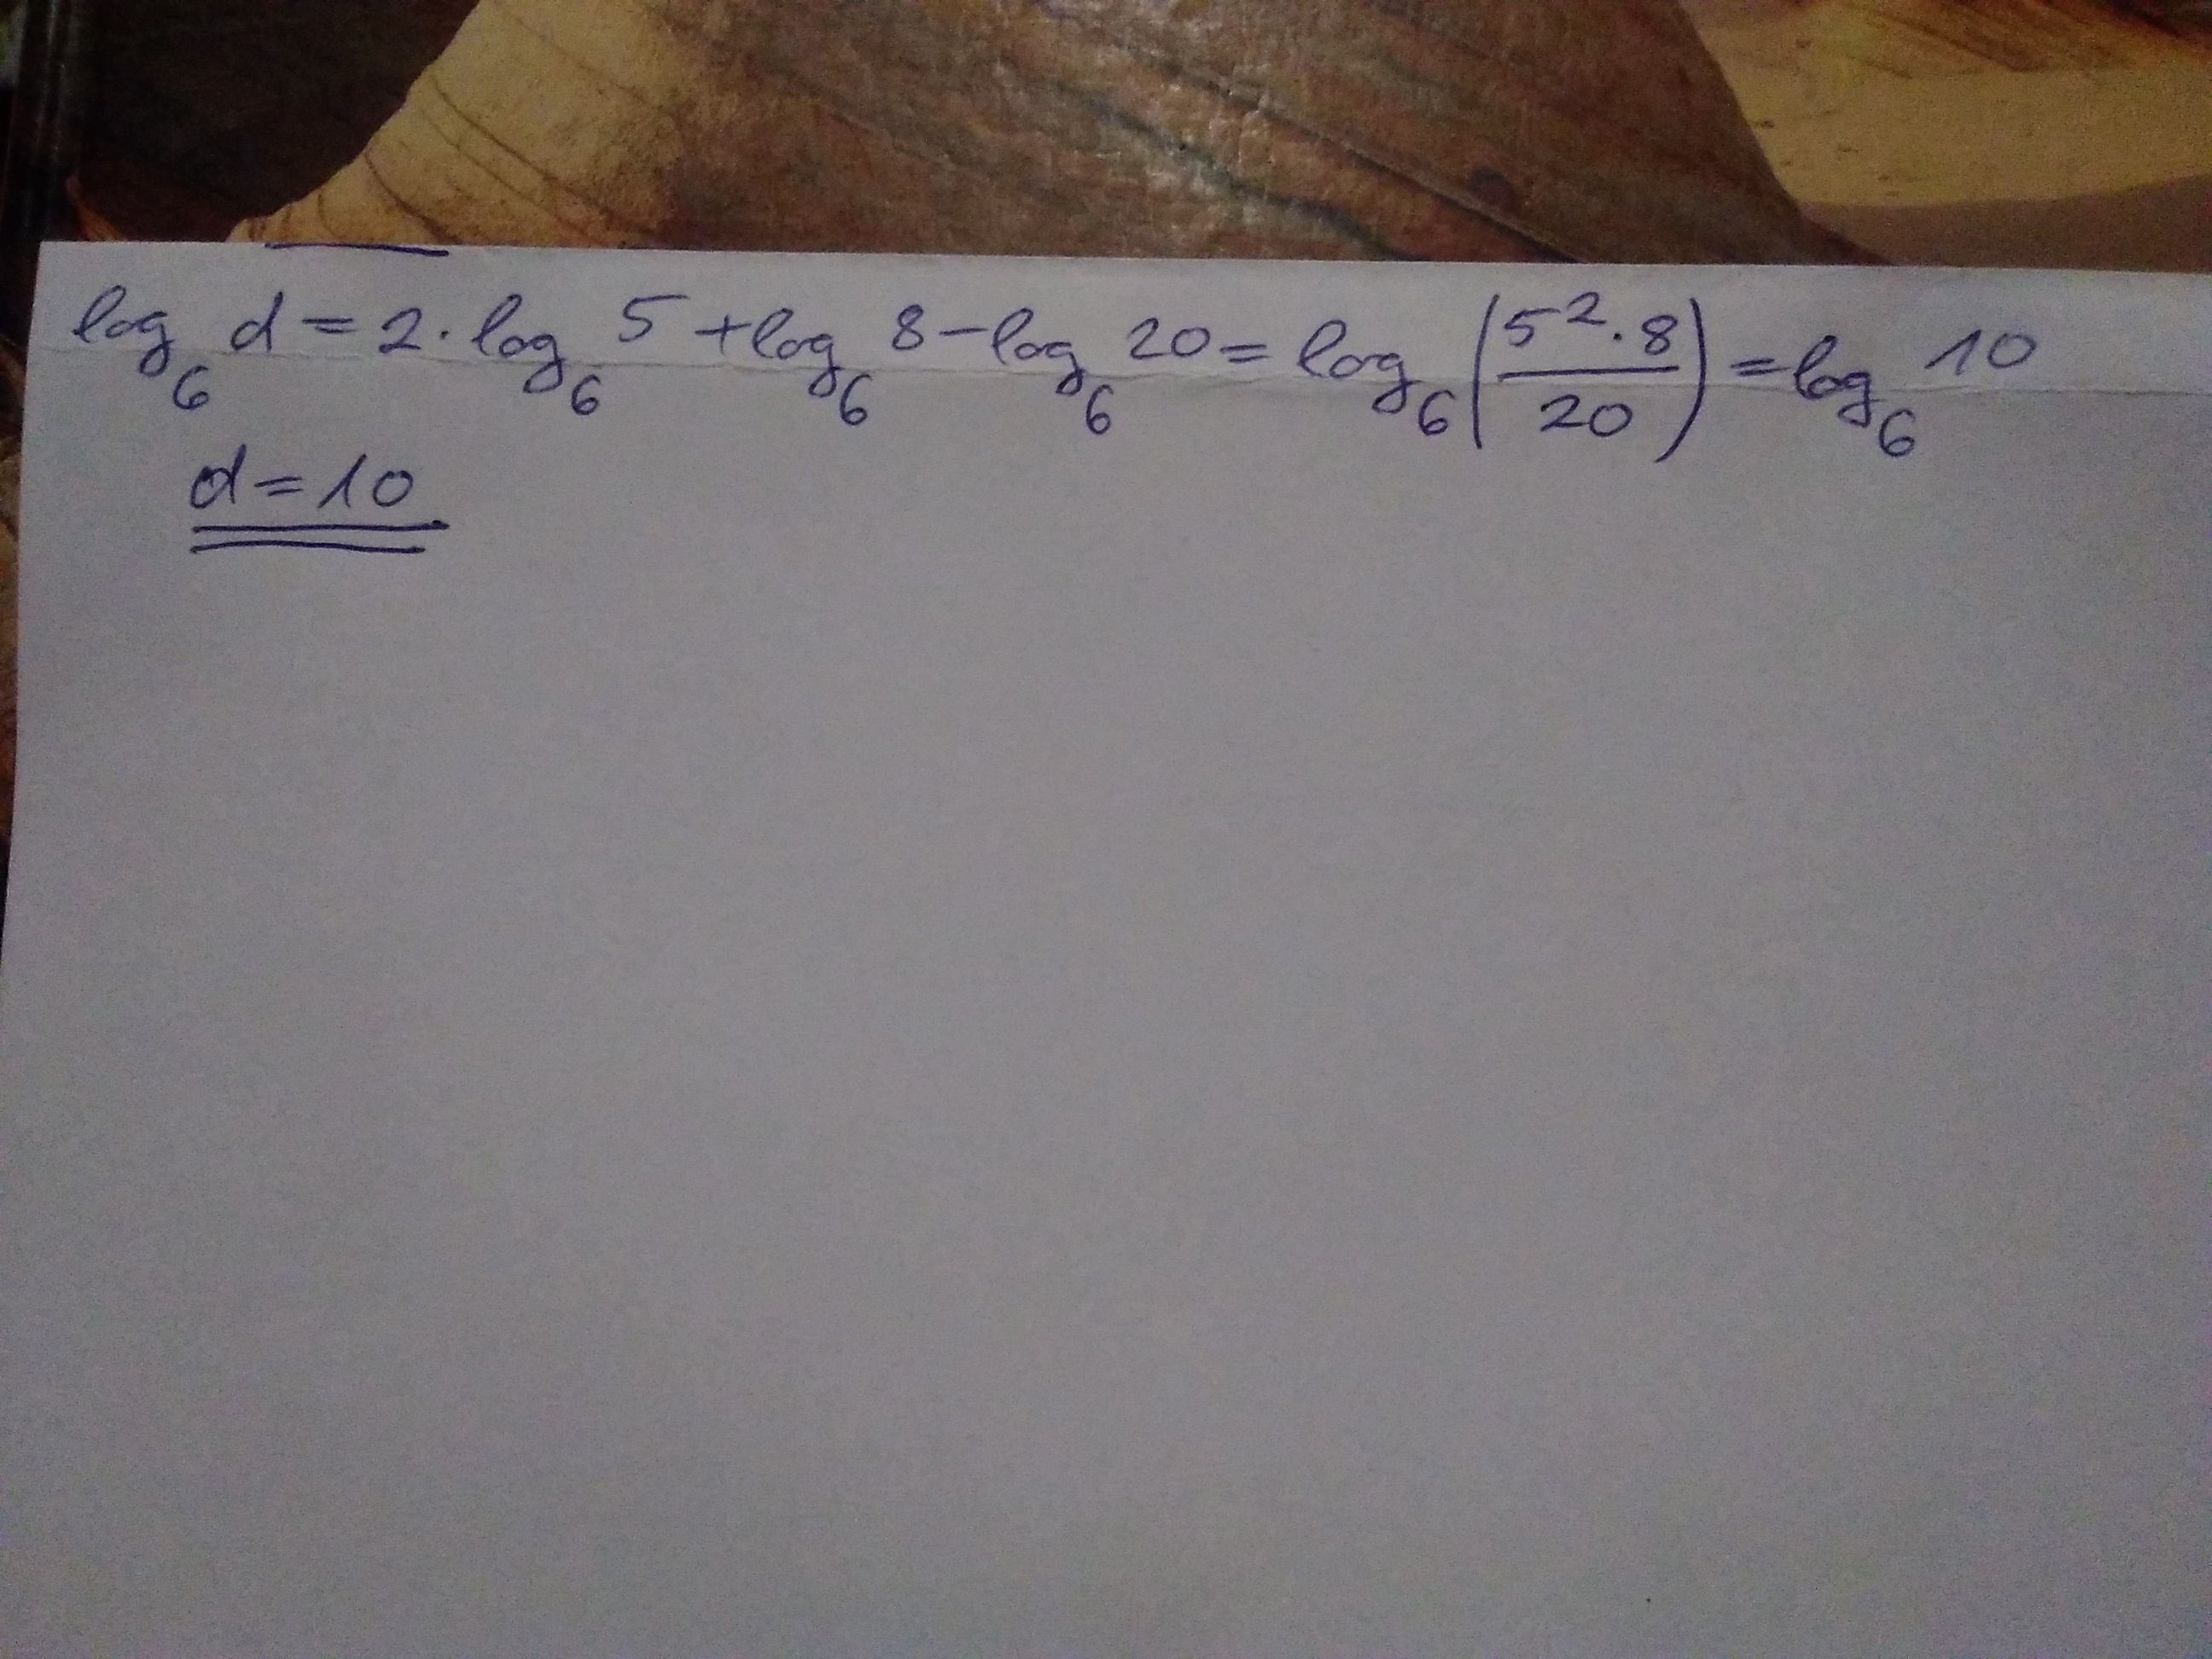 log₆ d = 2 · log₆ 5 + log₆ 8 - log₆ 20 = log₆ (5² · 8 / 20) = log₆ 10
d = 10